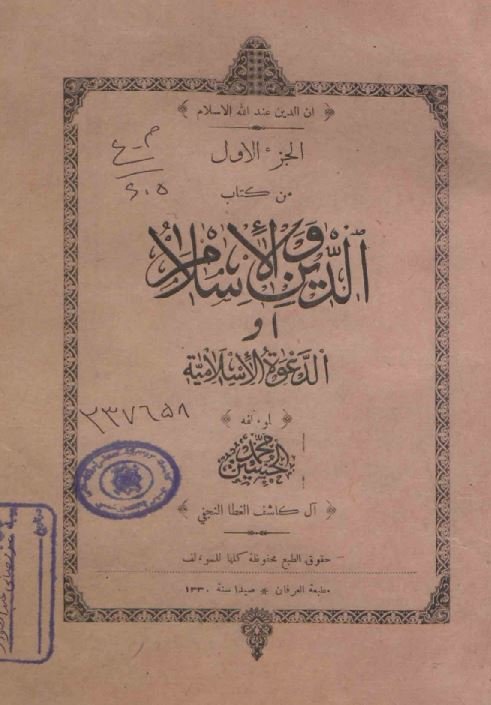 ﴿ ان الدين عند الله الاسلام ﴾
الجزء الاول
من كتاب
الدين والإسلام
او
الدعوة الإسلامية
﴿ لموءلفه ﴾
محمد الحسين
﴿ آل كاشف الغطا النجفي ﴾
حقوق الطبع محفوظة كلها للموءلف
مطبعة العرفان * صيدا سنة ١٣٣٠
٢٣٧٦٥٨
تاريخ